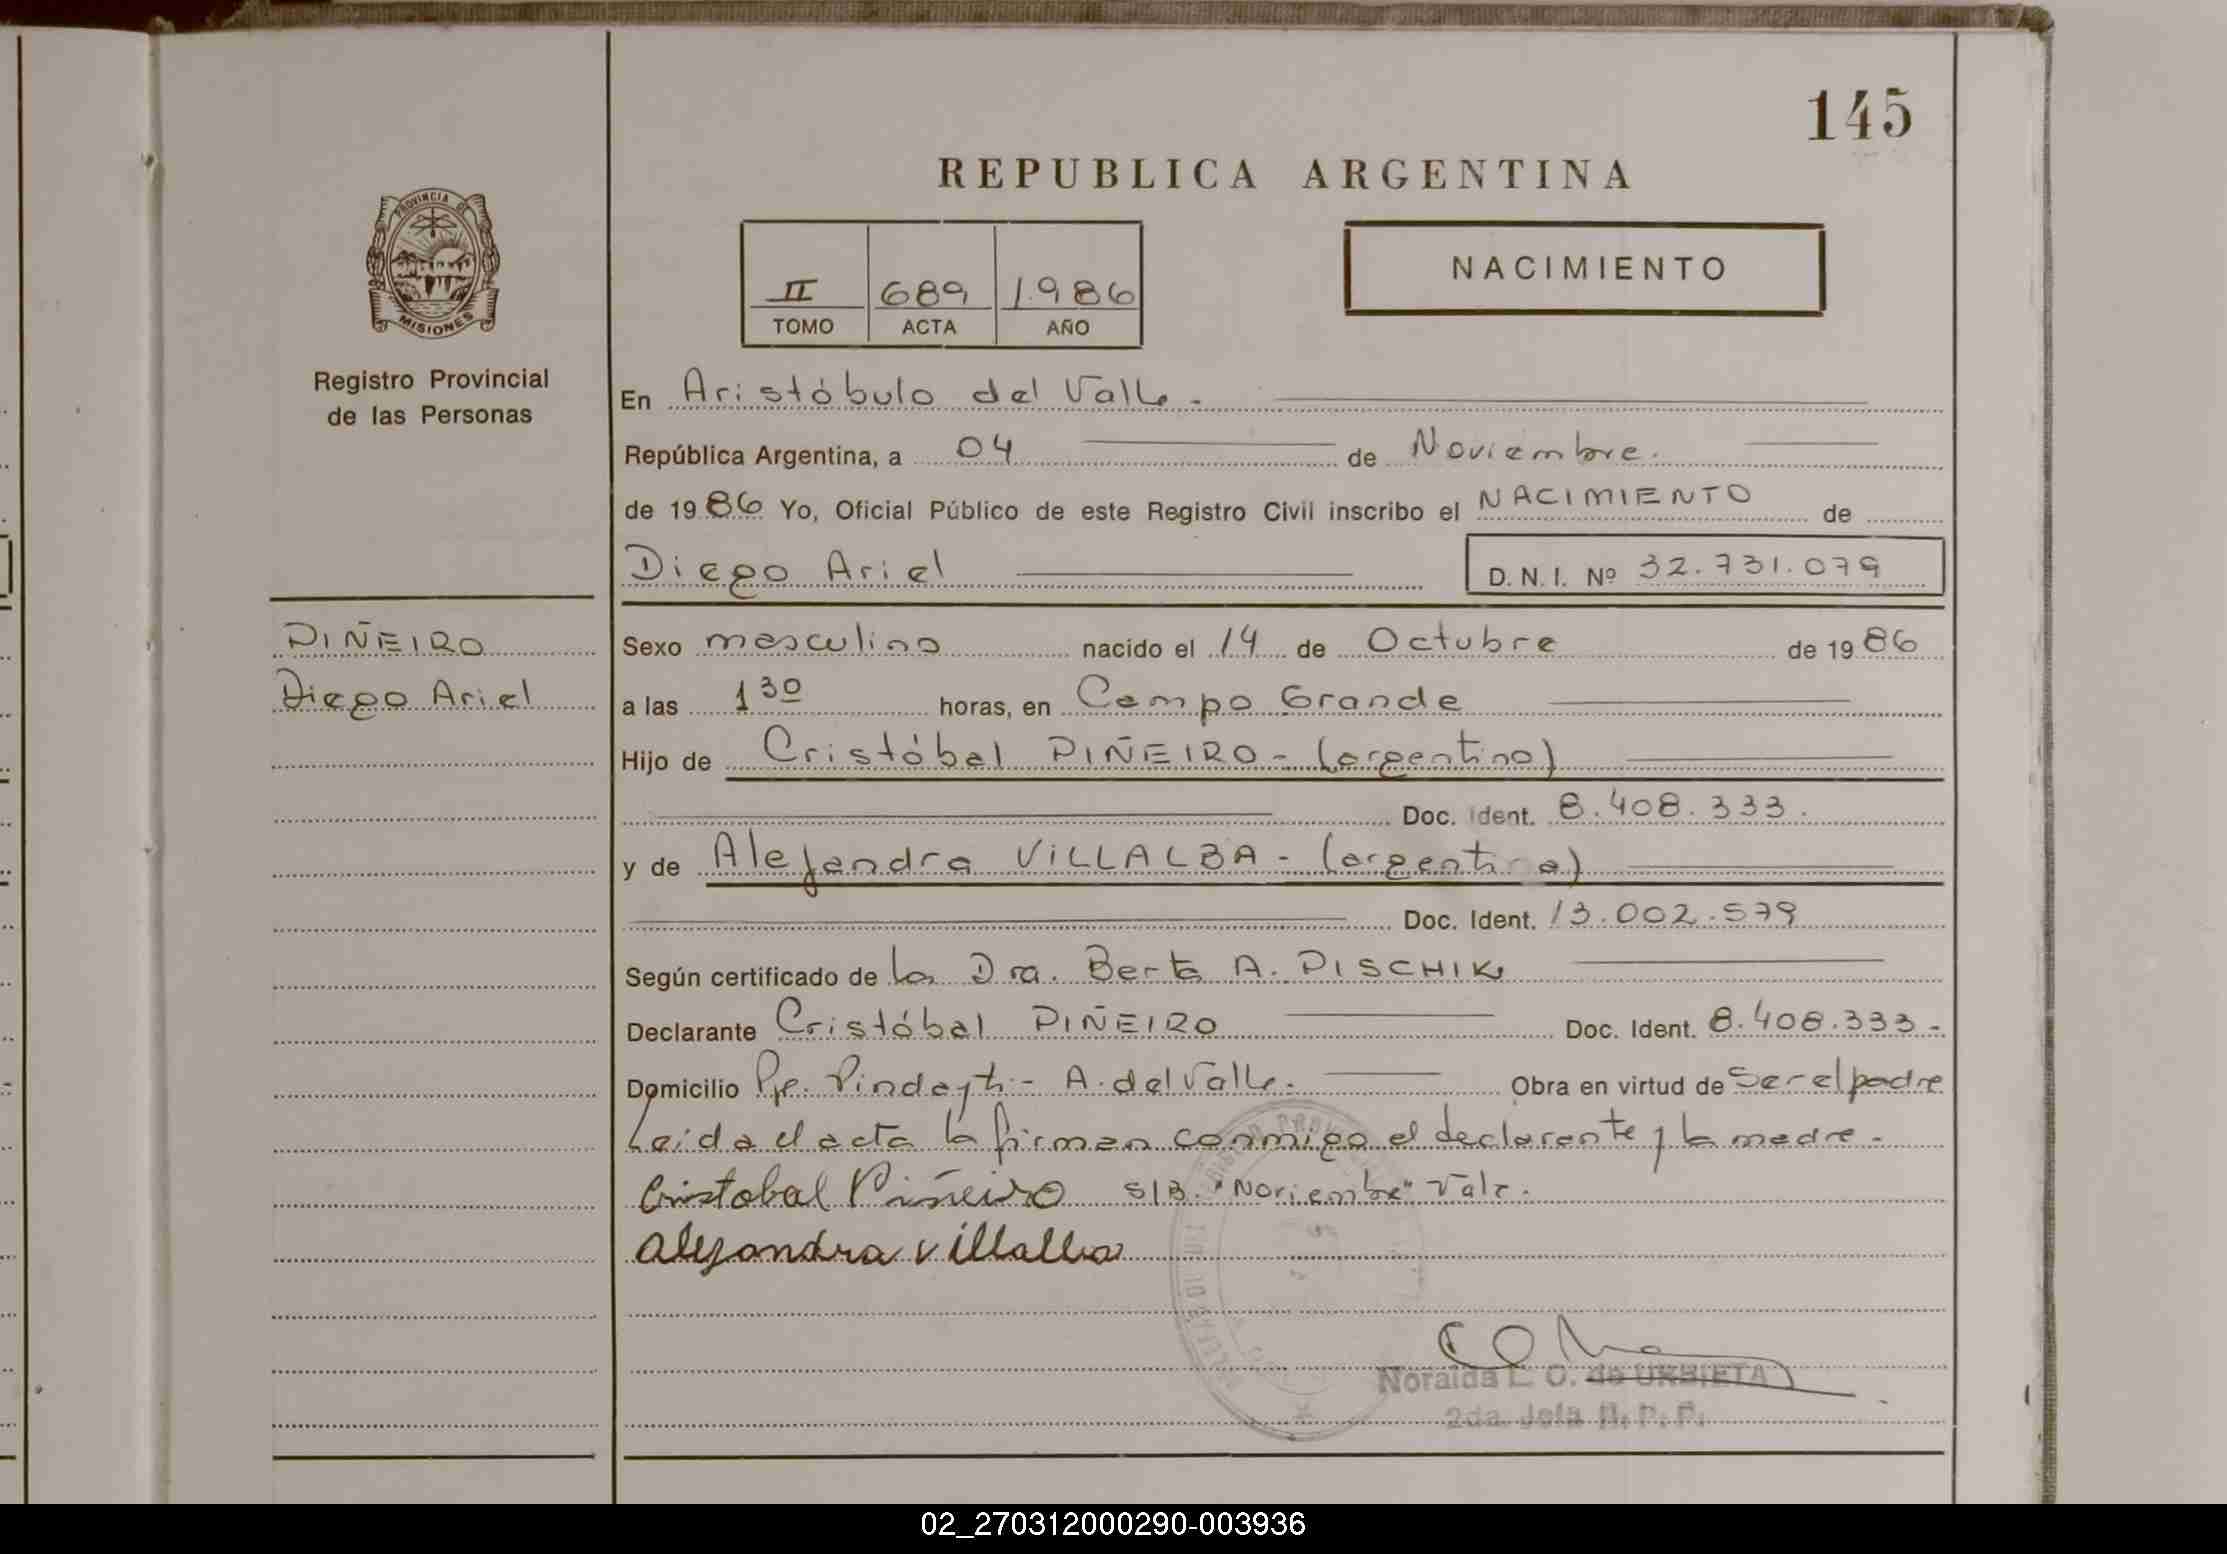 145
REPUBLICA ARGENTINA
PROVINCIA DE
MISIONES
Registro Provincial
de las Personas
II 689 1986
TOMO ACTA AÑO
NACIMIENTO
En Aristóbulo del Valle.
República Argentina, a 04 de Noviembre.
de 1986 Yo, Oficial Público de este Registro Civil inscribo el NACIMIENTO de
Diego Ariel D.N.I. Nº 32.731.079
PIÑEIRO
Diego Ariel
Sexo masculino nacido el 14 de Octubre de 1986
a las 1 30 horas, en Campo Grande
Hijo de Cristóbal PIÑEIRO - (argentino)
Doc. Ident. 8.408.333.
y de Alejandra VILLALBA - (argentina)
Doc. Ident. 13.002.579
Según certificado de la Dra. Berta A. PISCHIK
Declarante Cristóbal PIÑEIRO Doc. Ident. 8.408.333-
Domicilio Pje. Pindayti - A. del Valle. Obra en virtud de Ser el padre
Leída el acta la firman conmigo el declarante y la madre -
Cristobal Piñeiro S/B. "Noviembre" Vale.
Alejandra Villalba
Noraida L. O. de URBIETA
2da. Jefa R. P. P.
02_270312000290-003936